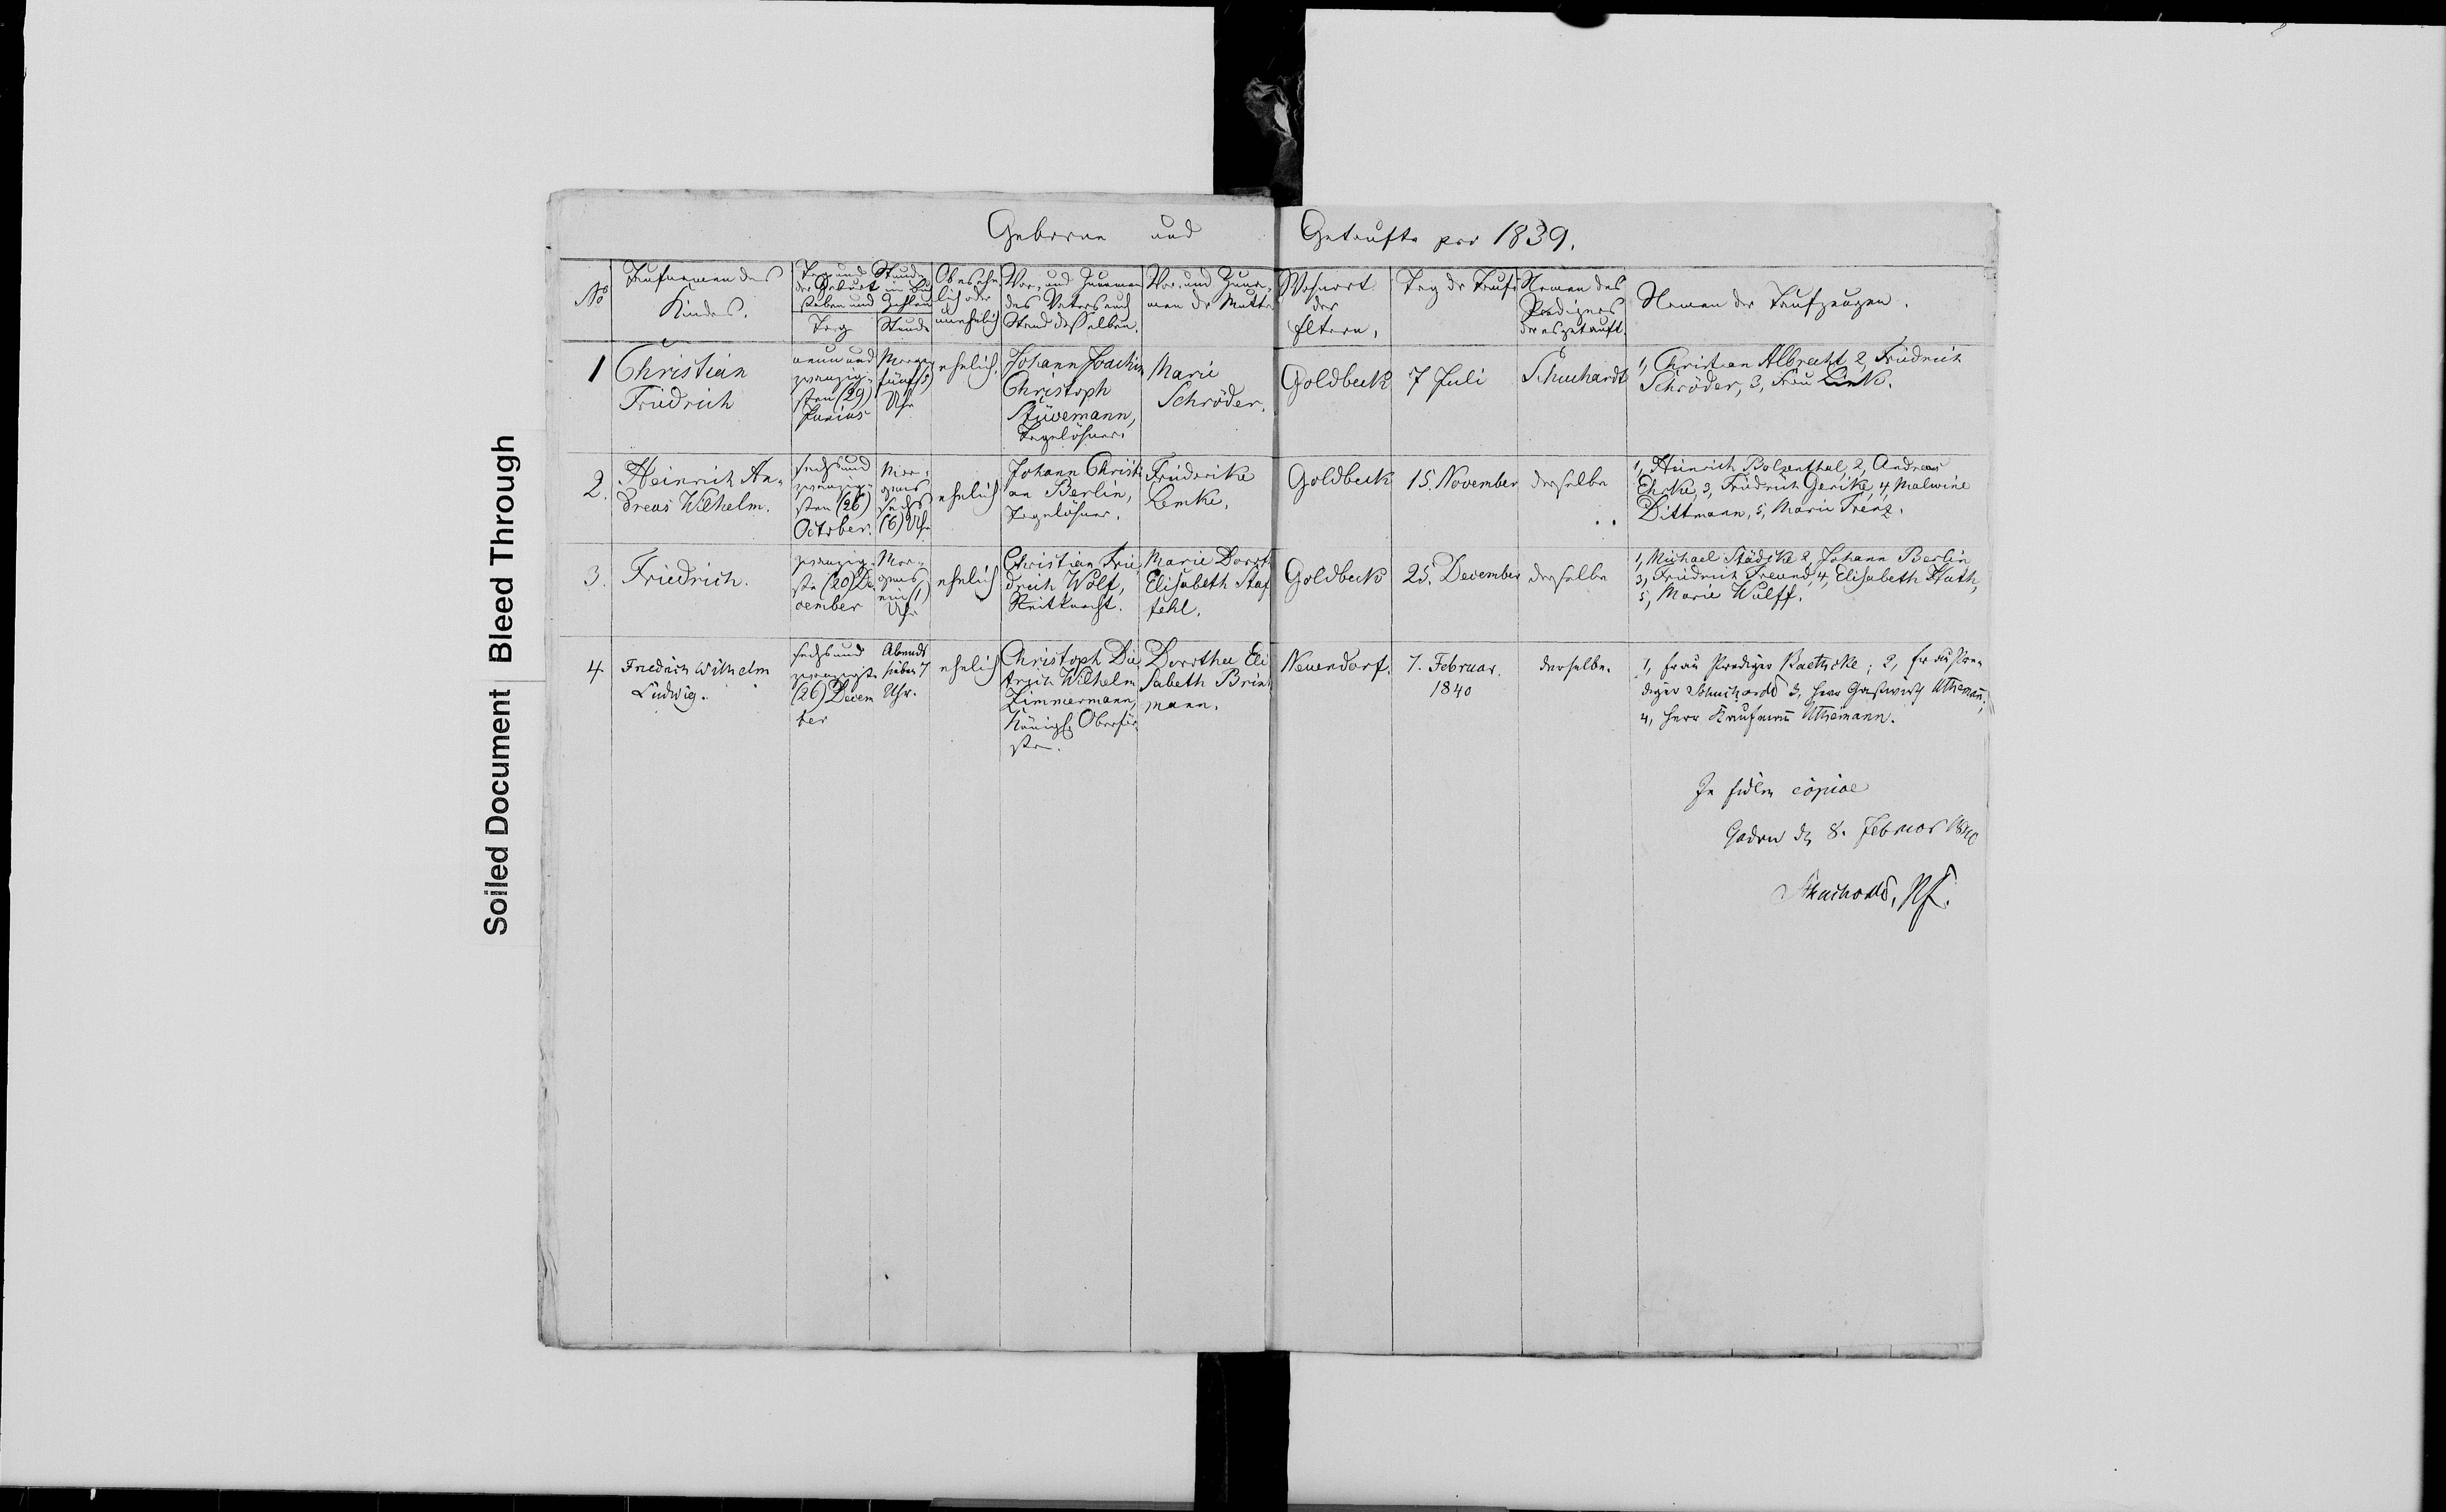 Soiled Document Bleed Through
Geborne und Getaufte pro 1839.
No
Taufnamen des
Kindes.
Tag und Stunde
der Geburt in Buch
staben und Zahlen
Tag
Stunde
Ob es ehe
lich oder
unehelich
Vor- und Zunamen
des Vaters auch
Stand desselben.
Vor- und Zuna-
men der Mutter
Wohnort
der
Eltern,
Tag der Taufe
Namen des
Predigers
der es getauft.
Namen der Taufzeugen.
1
Christian
Friedrich
neun und
zwanzig-
sten (29)
Junius
Morgens
fünf (5)
Uhr
ehelich.
Johann Joachim
Christoph
Stüvemann,
Tagelöhner.
Marie
Schröder.
Goldbeck
7 Juli
Schuchardt
1, Christian Albrecht 2, Friedrich
Schröder, 3, Frau Link.
2.
Heinrich An-
dreas Wilhelm.
sechs und
zwanzig-
sten (26)
October.
Mor-
gens
sechs
(6) Uhr
ehelich
Johann Christi
an Berlin,
Tagelöhner.
Friederike
Lemke.
Goldbeck
15. November
derselbe
1, Heinrich Bolzenthal, 2, Andreas
Ehrke, 3, Friedrich Gerike, 4, Malwine
Dittmann, 5, Marie Frenz.
3.
Friedrich.
zwanzig-
ste (20) De
cember
Mor-
gens
ein (1)
Uhr
ehelich
Christian Frie
drich Wolf,
Reitknecht.
Marie Doroth
Elisabeth Staf
fehl.
Goldbeck
25. December
derselbe
1, Michael Städike 2, Johann Berlin
3, Friedrich Freund, 4, Elisabeth Huth,
5, Marie Wulff.
4.
Friedrich Wilhelm
Ludwig.
sechs und
zwanzigste
(26) Decem
ber
Abends
sieben 7
Uhr.
ehelich
Christoph Die
trich Wilhelm
Zimmermann,
Königl. Oberför
ster.
Dorothee Eli
sabeth Brink
mann.
Neuendorf.
7. Februar.
1840
derselbe.
1, Frau Prediger Baethcke; 2, Frau Pre-
diger Schuchardt 3, Herr Gastwirth Uthemann;
4, Herr Kaufmann Uthemann.
In fidem copiae
Gadow d. 8. Februar 1840
Schuchardt, Pf.